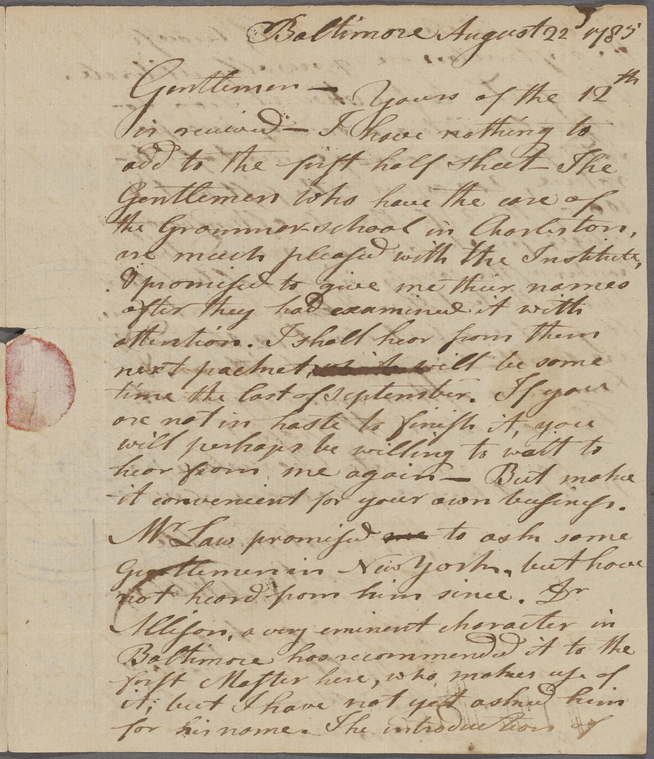 Baltimore August 22d 1785
Gentlemen — Yours of the 12th
is received — I have nothing to
add to the first half sheet — The
Gentlemen who have the care of
the Grammar school in Charleston,
are much pleased with the Institute,
& promised to give me their names
after they had examined it with
attention. I shall hear from them
next packet, will be some
time the last of September. If you
are not in haste to finish it, you
will perhaps be willing to wait to
hear from me again — But make
it convenient for your own business.
Mr Law promised me to ask some
Gentlemen in New York, but have
not heard from him since. Dr
Allison, a very eminent character in
Baltimore has recommended it to the
first Master here, who makes use of
it; but I have not yet asked him
for his name. The introduction of